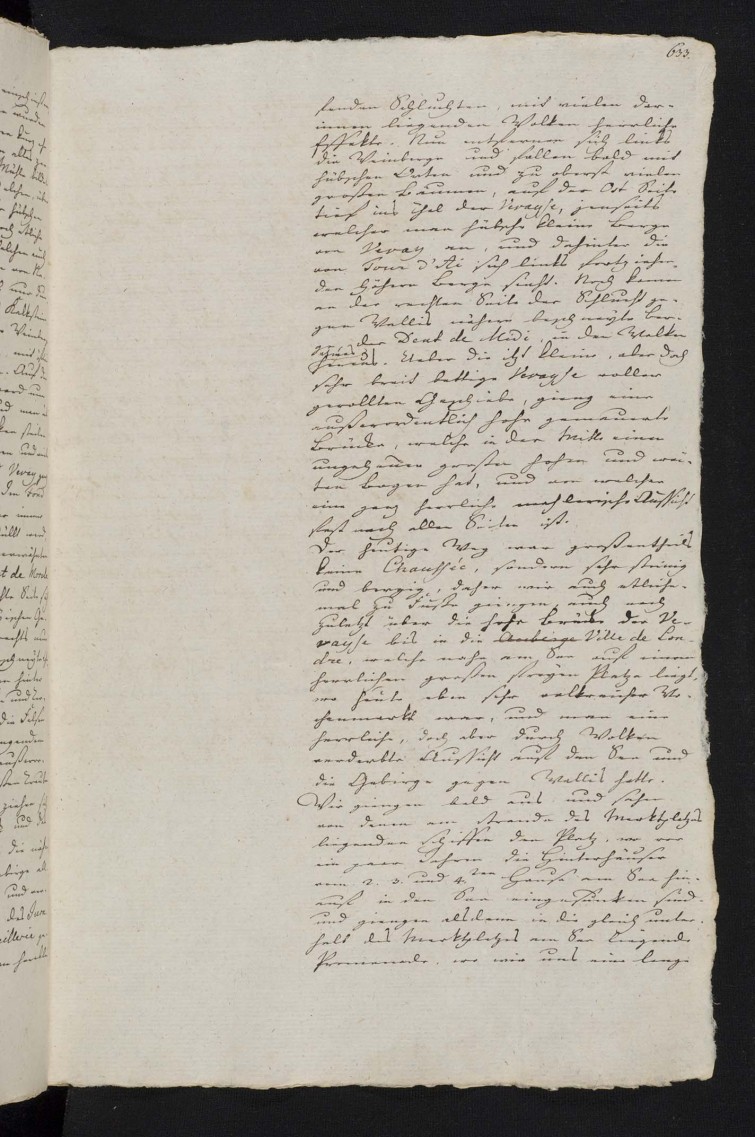 633.
fenden Schluchten, mit vielen dar-
innen liegenden Wolken herrliche
Effekte. Nun entfernen sich links
die Weinberge und fallen bald mit
hübschen Orten und zu oberst vielen
großen Bäumen, auf der Ost Seite
tief ins Thal der Vevayse, jenseits
welcher man hübsche kleine Berge
von Vevay an, und dahinter die
von Tour d'Ai sich links fortziehen-
den höhern Berge sieht. Noch kamen
an der rechten Seite der Schlucht ge-
gen Wallis nähere beschneyte Ber-
ge der Dent de Midi, in den Wolken
heraus. Ueber die itzt kleine, aber doch
sehr breit bettige Vevayse voller
gerollten Geschiebe, gieng eine
außerordentlich hohe gemauerte
Brücke, welche in der Mitte einen
ungeheuern großen hohen und wei-
ten Bogen hat, und von welcher
eine ganz herrliche mahlerische Aussicht
fast nach allen Seiten ist.
Der heutige Weg war großentheils
keine Chaussée, sondern sehr steinig
und bergig, daher wir auch etliche-
mal zu Fuße giengen, auch noch
zuletzt über die hohe Brücke der Ve-
vayse bis in die Auberge Ville de Lon-
dre, welche nahe am See auf einem
herrlichen großen freyen Platze liegt,
wo heute eben sehr volkreicher Wo-
chenmarkt war, und man eine
herrliche, doch aber durch Wolken
verderbte Aussicht auf den See und
die Gebirge gegen Wallis hatte.
Wir giengen bald aus und sahen
von denen am Strande des Marktplatzes
liegenden Schiffen den Platz, wo vor
ein paar Jahren die Hinterhäuser
vom 2. 3. und 4.ten Hause am See hin-
auf in den See eingesunken sind,
und giengen alsdenn in die gleich unter-
halb des Marktplatzes am See liegende
Promenade, wo wir uns eine lange